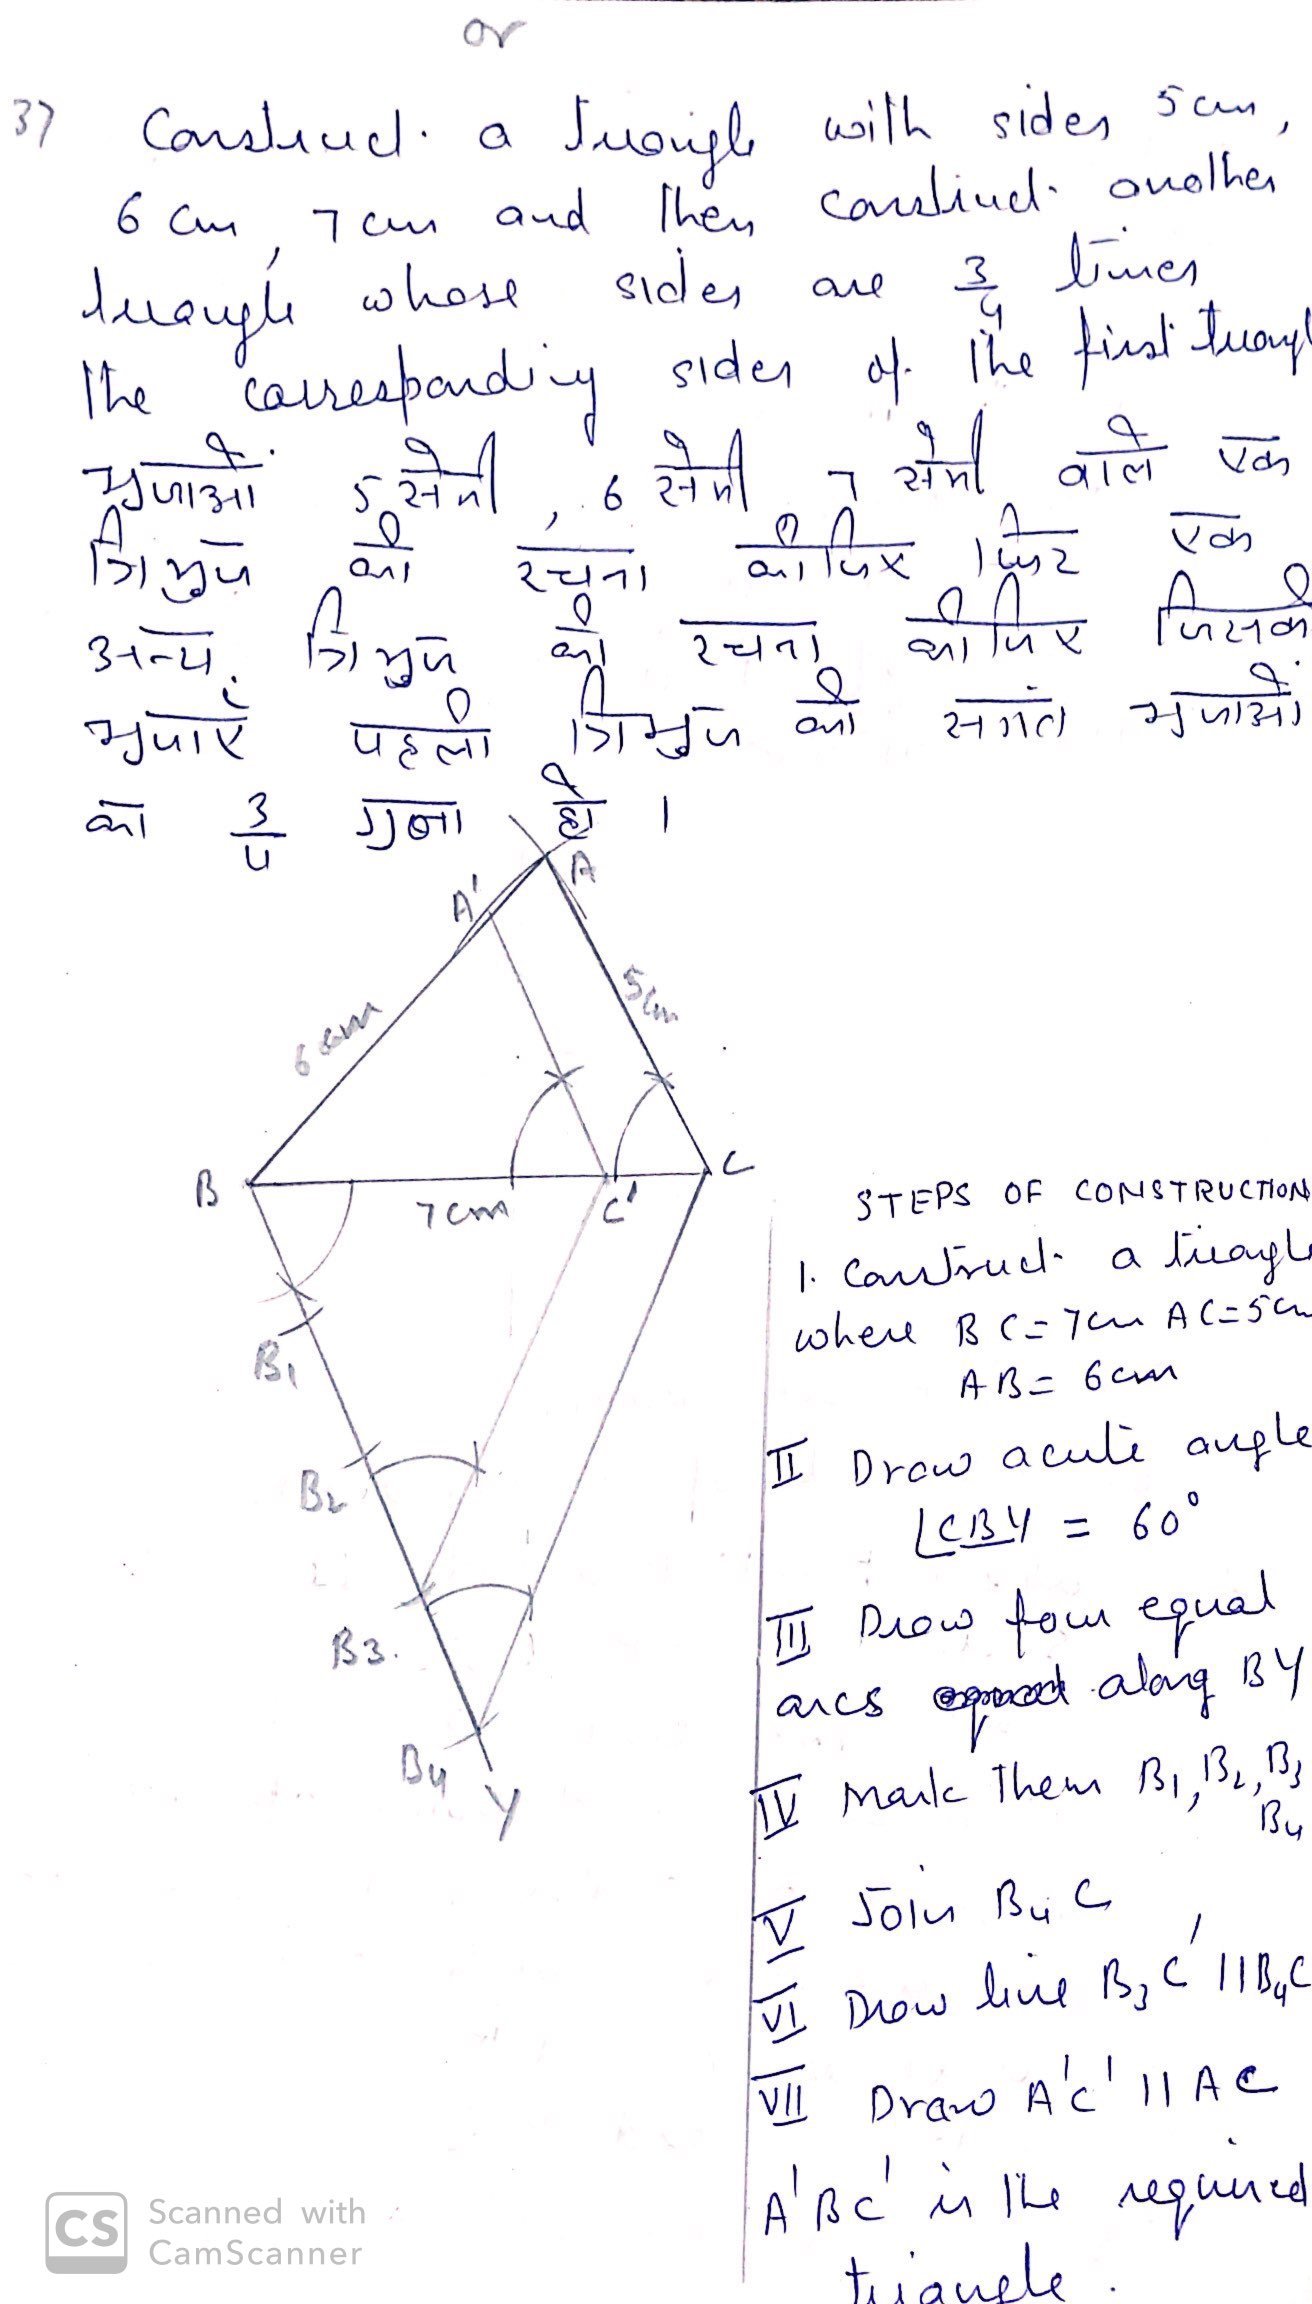 or
37 Construct a triangle with sides 5 cm,
6 cm, 7 cm and then construct another
triangle whose sides are 3/4 times
the corresponding sides of the first triangl
भुजाओं 5 सेमी, 6 सेमी 7 सेमी वाले एक
त्रिभुज की रचना कीजिए। फिर एक
अन्य त्रिभुज की रचना कीजिए जिसकी
भुजाएं पहली त्रिभुज की संगत भुजाओं
का 3/4 गुना हो ।
A
A'
6 cm
5cm
B
7cm
C'
C
B1
B2
B3.
B4
Y
STEPS OF CONSTRUCTION
1. Construct a triangle
where BC = 7cm AC = 5cm
AB = 6cm
II Draw acute angle
∠CBY = 60°
III Draw four equal
arcs along BY
IV Mark them B1, B2, B3
B4
V Join B4 C
VI Draw line B3 C' || B4C
VII Draw A'C' || AC
A'BC' is the required
triangle.
CS Scanned with
CamScanner